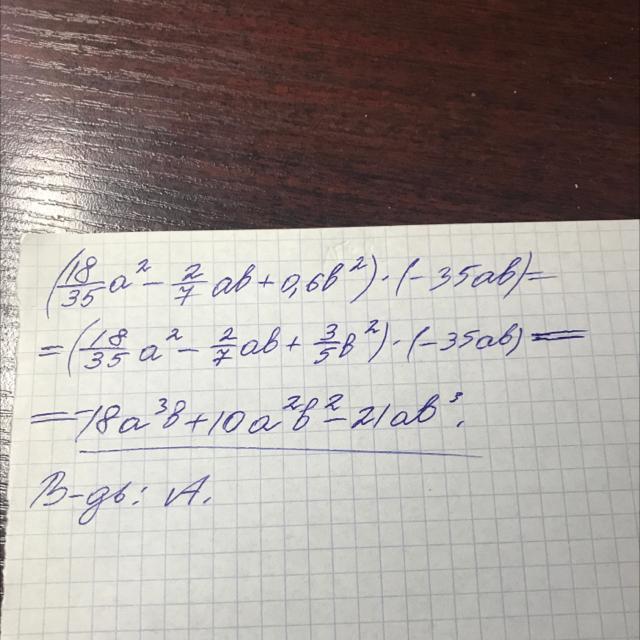 (18/35 a² - 2/7 ab + 0,6b²) · (-35ab) =
= (18/35 a² - 2/7 ab + 3/5 b²) · (-35ab) =
= -18a³b + 10a²b² - 21ab³.
В-дь: А.